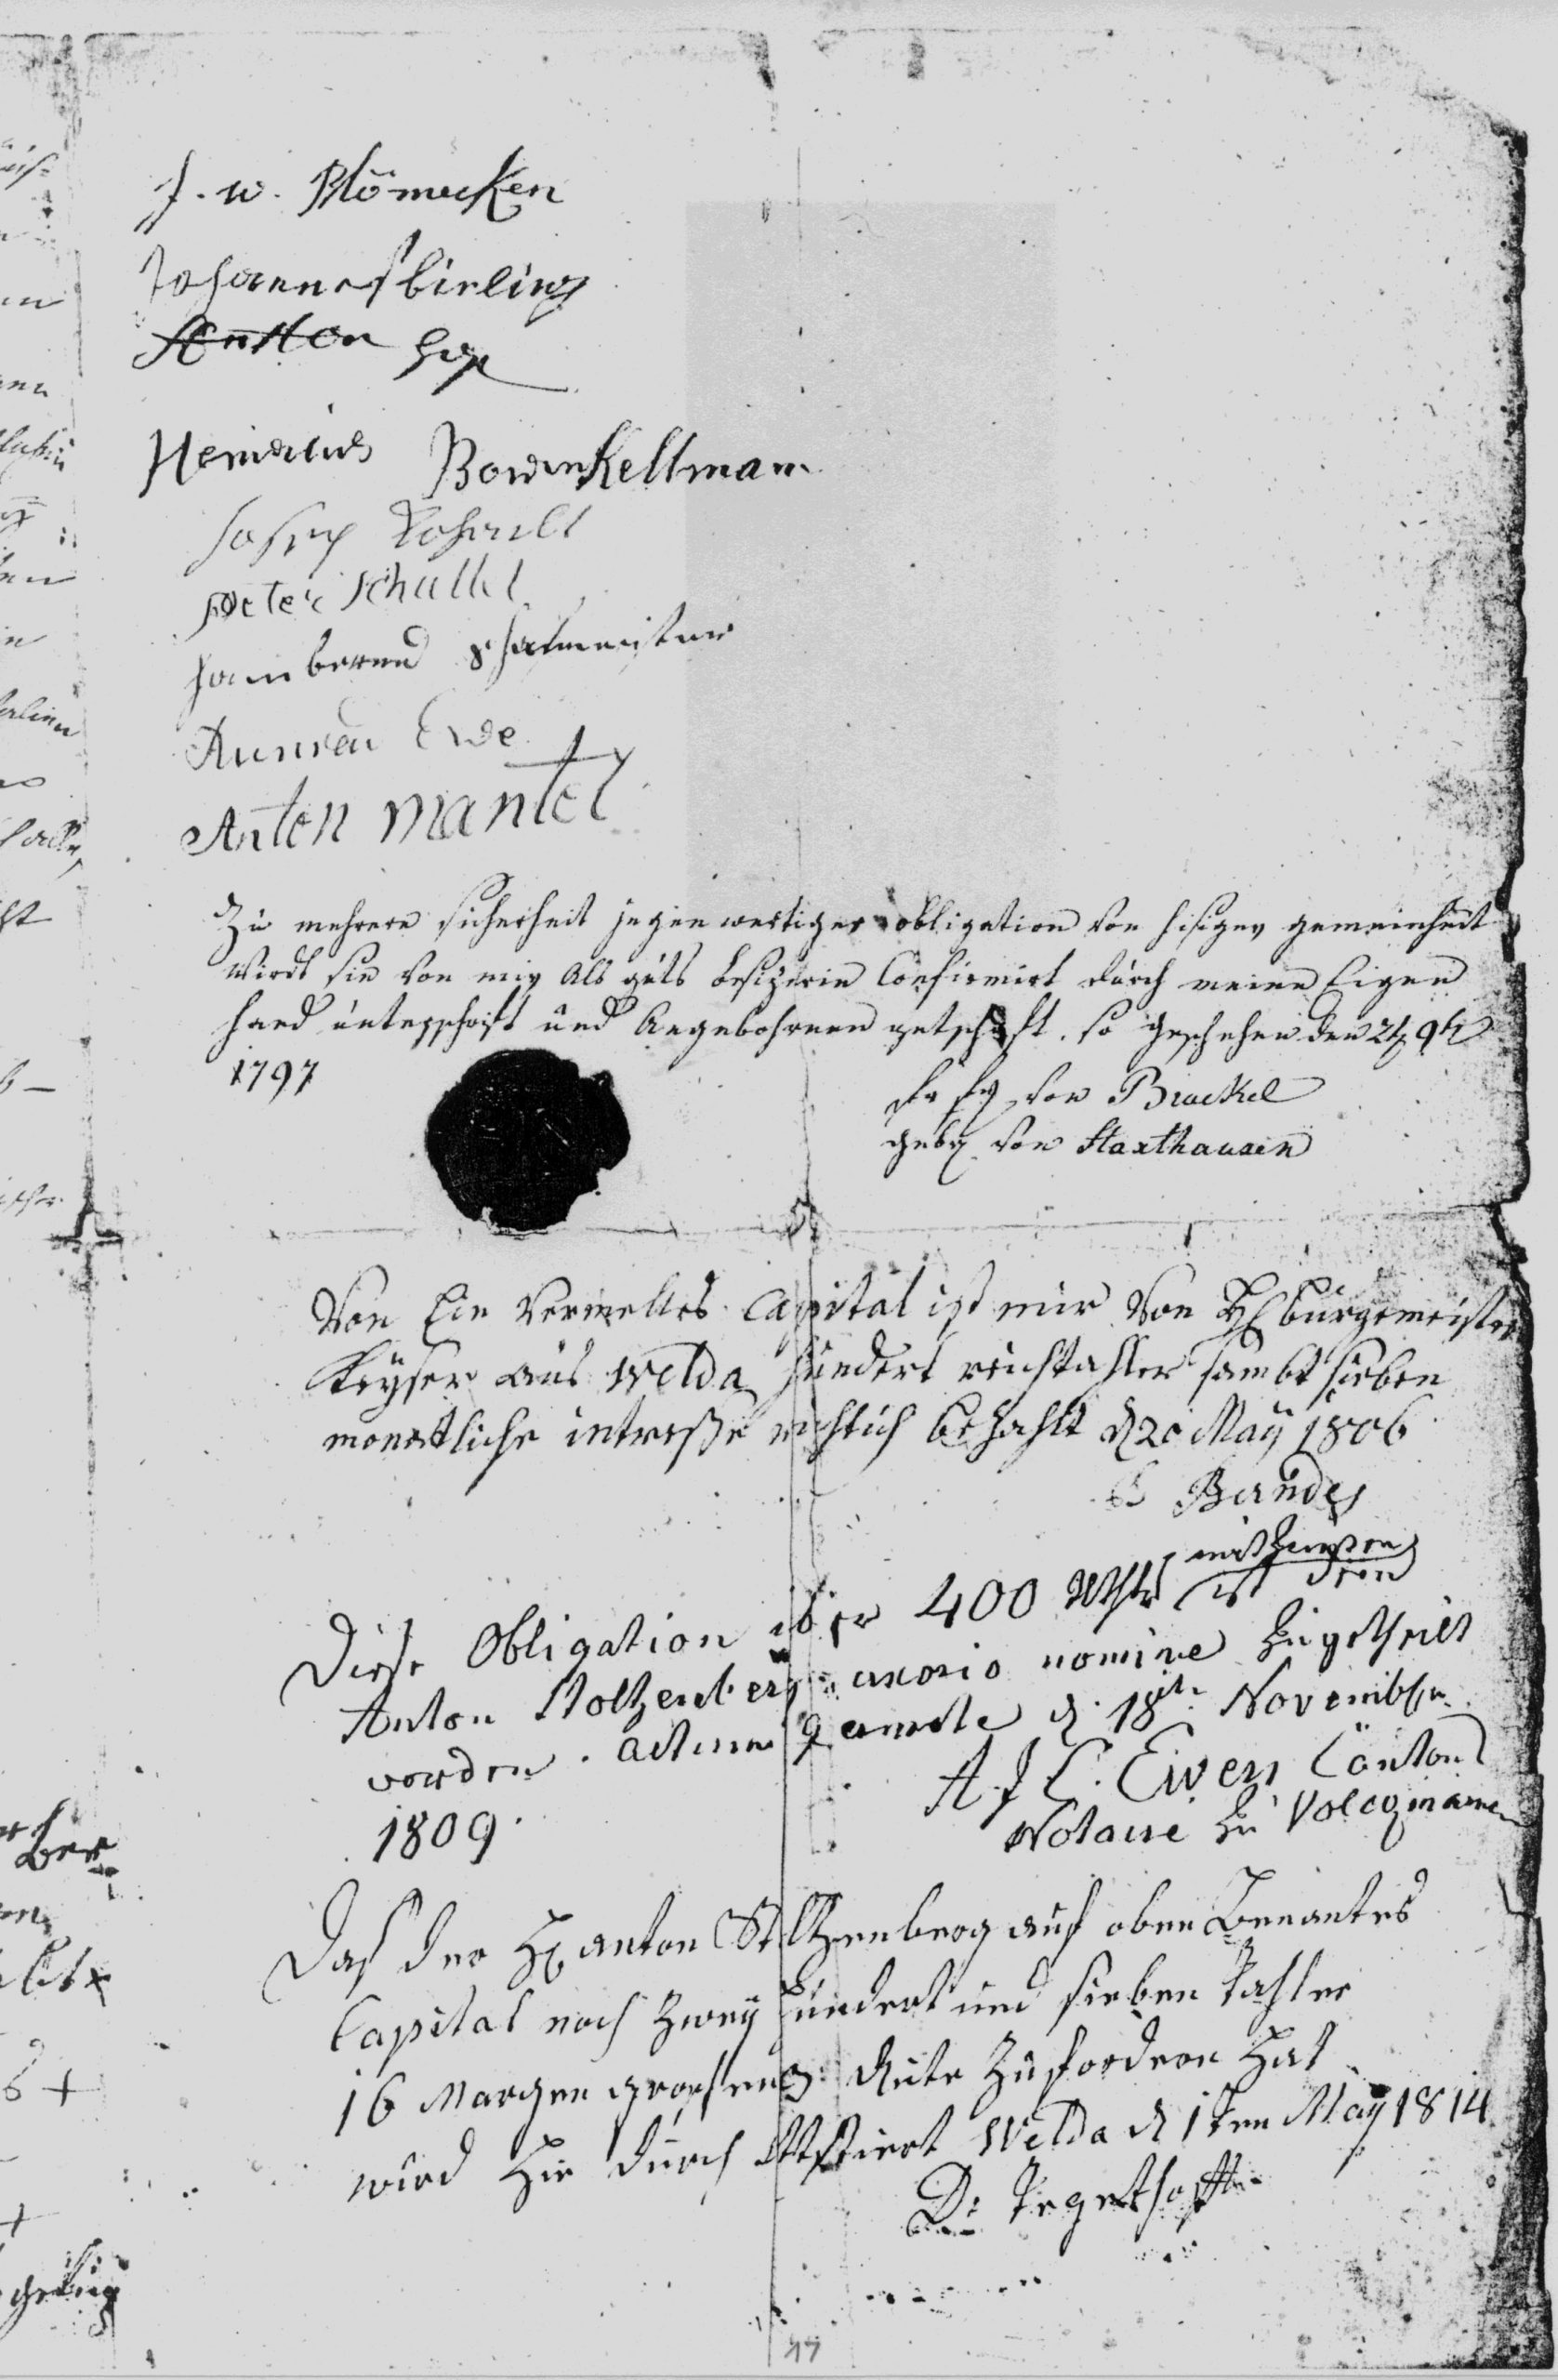 J. W. Blömecken
Johannes bieling
Anthon
Henricus Bowinkellman
Joseph
peter schulte
Hanberend schafmeister
Kunrad Ewe
Anton Mantel
Zu mehrere sicherheit jegenwertiger obligation von hisiger gemeinheit
wird sie von mir Als guts besizerin Confirmirt durch meine Eigen
hand unterschrift und Angebohrnen petschaft. so geschehen den
1797
von Brackel
gebr von Haxthausen
Von Ein vermeltes Capital ist mir von H burgemeister
Keyser aus Welda hundert reichtahler sambt sieben
monatliche intresse richtich bezahlt d 20 May 1806
Diese Obligation über 400 Rthlr ist dem
mit Zinsen
Anton Stoltzenberg uxorio nomine zugetheilt
worden. Actum Germete d. 18te Novembr.
1809.
A. J. C. Evers Canton
Notaire zu Volcqmarsen
Das der H anton Stoltzenberg auf oben Benantes
Capital noch Zwey hundert und sieben Tahler
16 Margen groschen gute zu fordern Hat
wird Hir durch Attstiert Welda d 1ten May 1814
D: Tegethoff
17